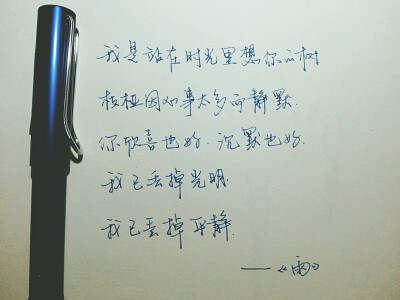 我是站在时光里想你的树
枝桠因心事太多而静默.
你欣喜也好.沉默也好.
我已丢掉光明.
我已丢掉平静.
——《雨》